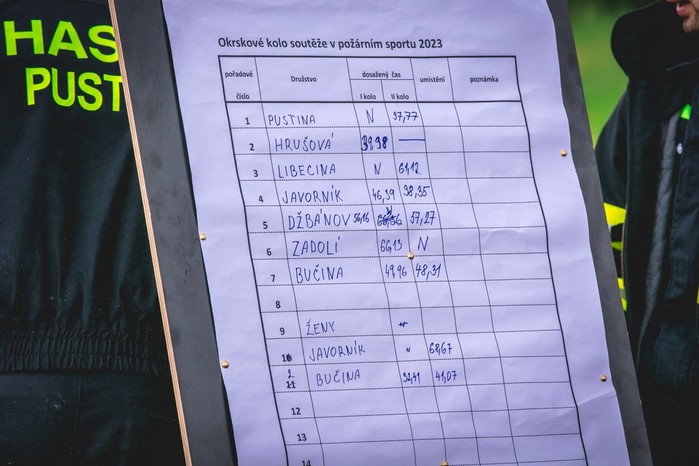 HAS
PUST
Okrskové kolo soutěže v požárním sportu 2023
pořadové číslo Družstvo dosažený čas umístění poznámka
I kolo II kolo
1 PUSTINA N 37,77
2 HRUŠOVÁ 38 —
3 LIBECINA N 61,12
4 JAVORNÍK 46,39 38,35
5 DŽBÁNOV 56,16 37,27
6 ZADOLÍ 66,13 N
7 BUČINA 49,96 48,31
8
9 ŽENY
10 JAVORNÍK N 68,67
2 11 BUČINA 52,41 41,07
12
13
14